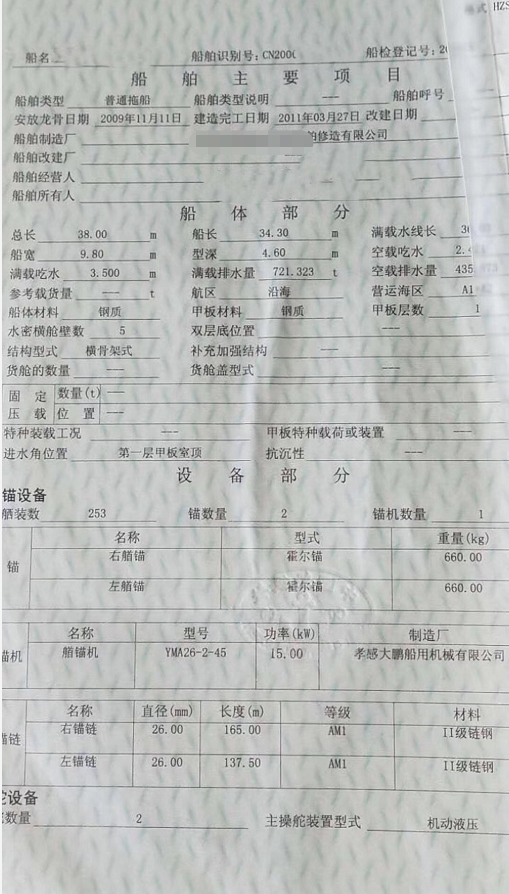 格式 HZS
船名 船舶识别号：CN200 船检登记号：20
船舶主要项目
船舶类型 普通拖船 船舶类型说明 --- 船舶呼号
安放龙骨日期 2009年11月11日 建造完工日期 2011年03月27日 改建日期
船舶制造厂 舶修造有限公司
船舶改建厂 ---
船舶经营人
船舶所有人
船体部分
总长 38.00 m 船长 34.30 m 满载水线长
船宽 9.80 m 型深 4.60 m 空载吃水 2.
满载吃水 3.500 m 满载排水量 721.323 t 空载排水量 435
参考载货量 --- t 航区 沿海 营运海区 A1
船体材料 钢质 甲板材料 钢质 甲板层数 1
水密横舱壁数 5 双层底位置 ---
结构型式 横骨架式 补充加强结构 ---
货舱的数量 --- 货舱盖型式 ---
固定 数量(t) ---
压载 位置 ---
特种装载工况 --- 甲板特种载荷或装置 ---
进水角位置 第一层甲板室顶 抗沉性 ---
设备部分
锚设备
舾装数 253 锚数量 2 锚机数量 1
名称 型式 重量(kg)
锚 右艏锚 霍尔锚 660.00
左艏锚 霍尔锚 660.00
名称 型号 功率(kW) 制造厂
锚机 艏锚机 YMA26-2-45 15.00 孝感大鹏船用机械有限公司
名称 直径(mm) 长度(m) 等级 材料
锚链 右锚链 26.00 165.00 AM1 II级链钢
左锚链 26.00 137.50 AM1 II级链钢
舵设备
数量 2 主操舵装置型式 机动液压